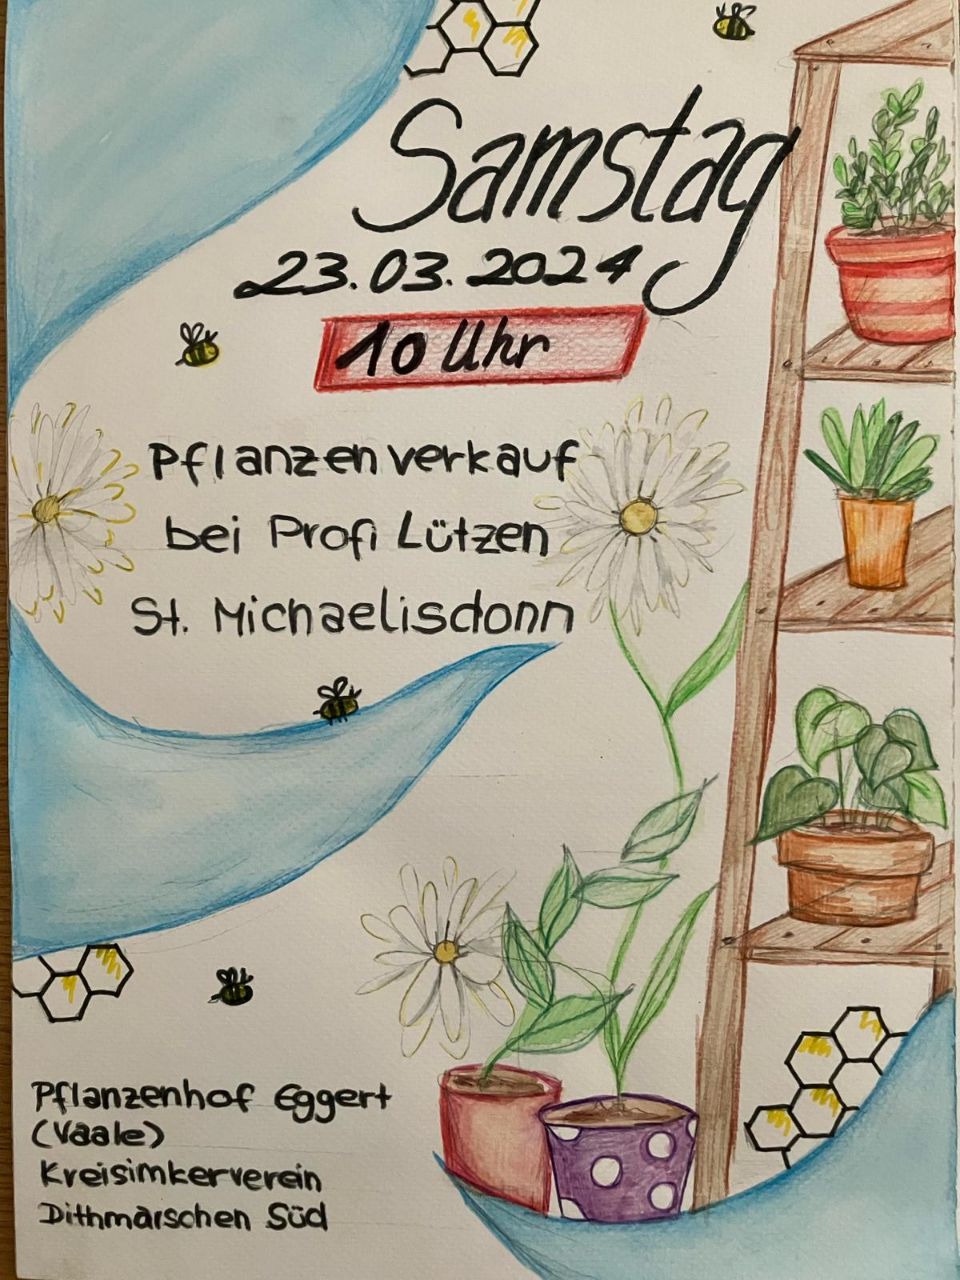 Samstag
23.03.2024
10 Uhr
Pflanzenverkauf
bei Profi Lützen
St. Michaelisdonn
Pflanzenhof Eggert
(Vaale)
Kreisimkerverein
Dithmarschen Süd